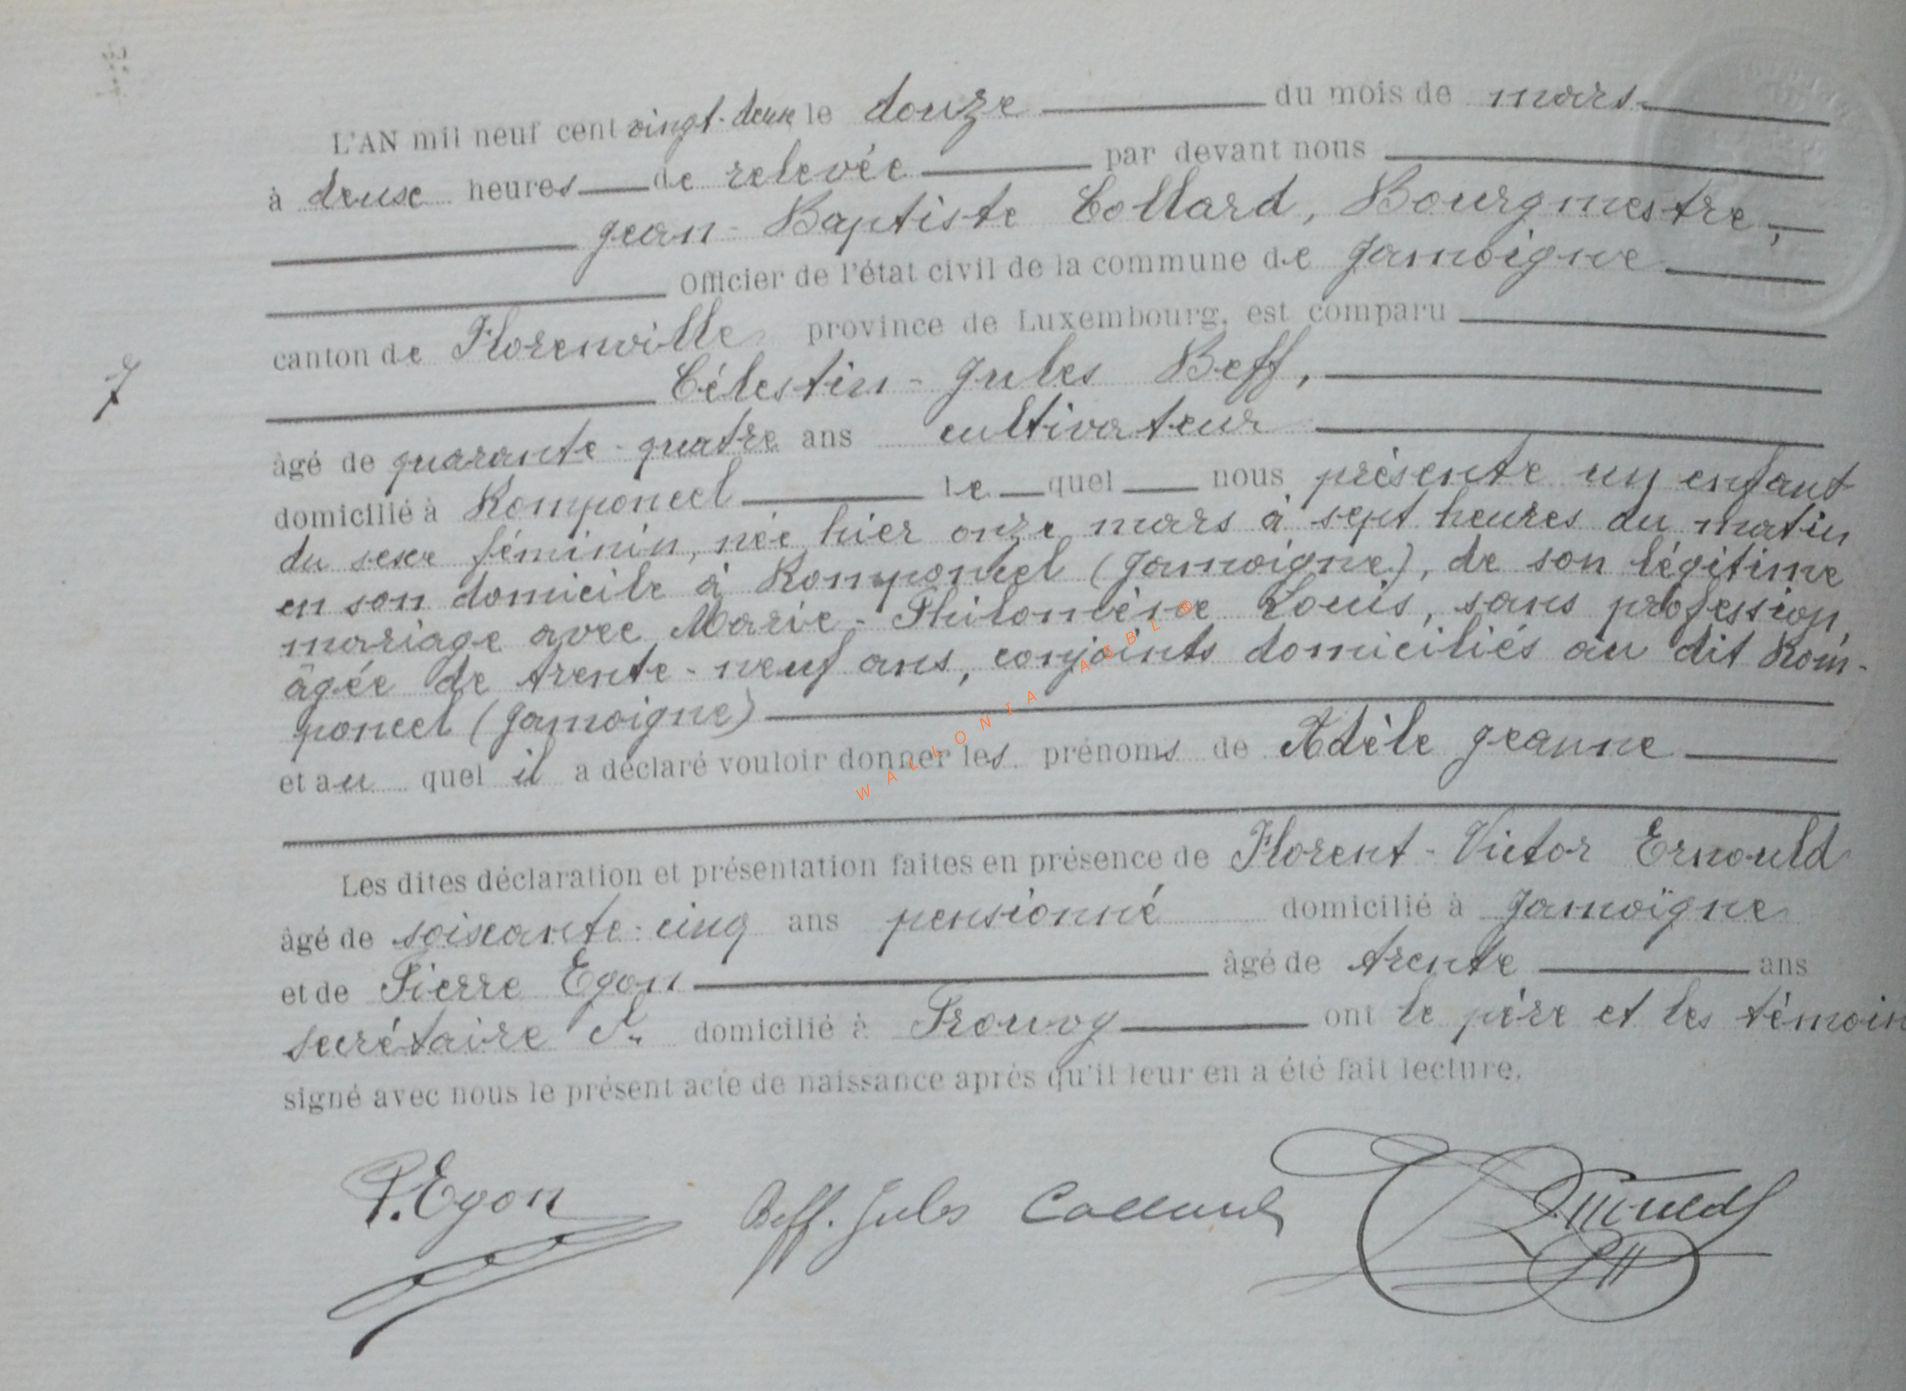 L'AN mil neuf cent vingt-deux le douze du mois de mars
à deux heures de relevée par devant nous
Jean-Baptiste Collard, Bourgmestre,
Officier de l'état civil de la commune de Jamoigne
canton de Florenville province de Luxembourg, est comparu
7
Célestin-Jules Beff,
âgé de quarante-quatre ans cultivateur
domicilié à Romponcel le quel nous présente un enfant
du sexe féminin, née hier onze mars à sept heures du matin
en son domicile à Romponcel (Jamoigne), de son légitime
mariage avec Marie-Philomène Louis, sans profession,
âgée de trente-neuf ans, conjoints domiciliés au dit Rom-
poncel (Jamoigne)
et au quel il a déclaré vouloir donner les prénoms de Adèle Jeanne
Les dites déclaration et présentation faites en présence de Florent-Victor Ernould
âgé de soixante-cinq ans pensionné domicilié à Jamoïgne
et de Pierre Egon âgé de trente ans
secrétaire domicilié à Prouvy ont le père et les témoin
signé avec nous le présent acte de naissance après qu'il leur en a été fait lecture.
P. Egon Beff. Jules Collard Ernould
WALLONIA ASBL ©